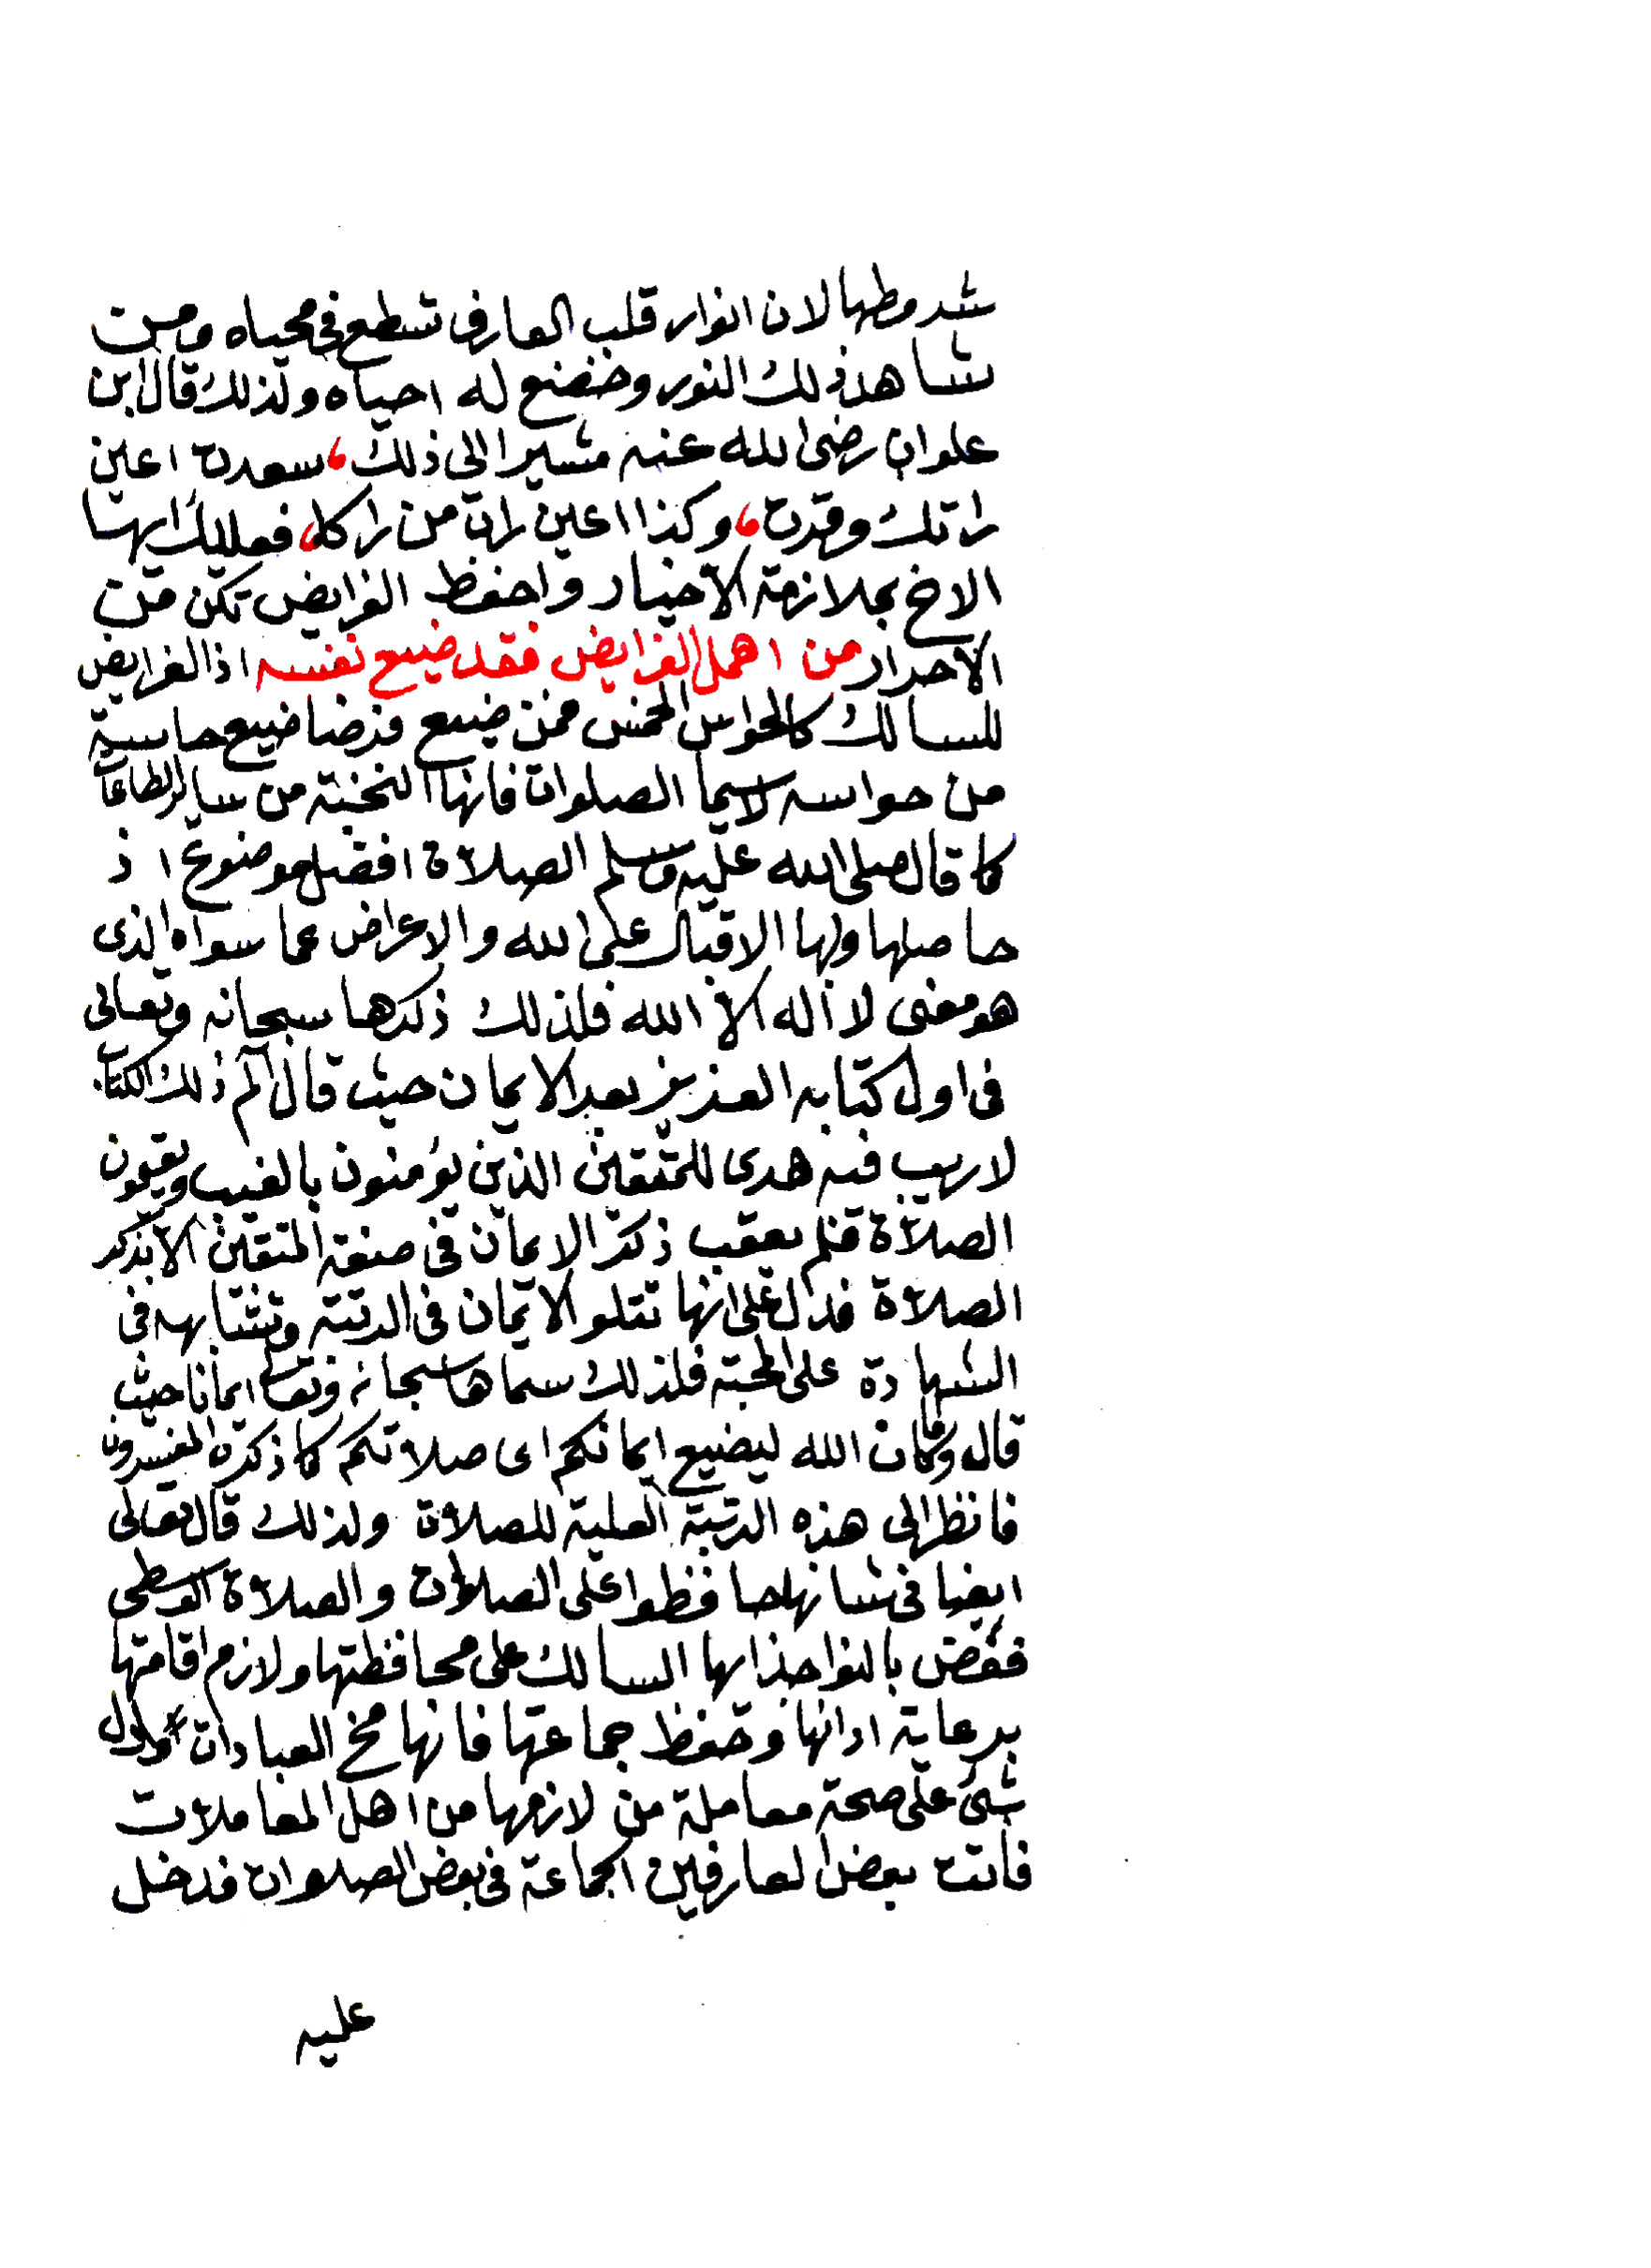 شد مطها لان انوار قلب العارف تسطع في محياه ومن
شاهد ذلك النور وخضع له احياه ولذلك قال ابن
علوان رضى الله عنه مشيرا الى ذلك، سعدت اعين
راتك وقرت، وكذا اعين رات من راكا، فعليك ايها
الاخ بملازمة الاخيار واحفظ الفرايض تكن من
الاحرار من اهمل الفرايض فقد ضيع نفسه اذ الفرايض
للسالك كالحواس الخمس فمن ضيع فرضا ضيع حاسة
من حواسه لاسيما الصلوات فانها النخبة من ساير الطاعات
كما قال صلى الله عليه وسلم الصلاة افضل موضوع اذ
حاصلها ولها الاقبال على الله والاعراض عما سواه الذى
هو معنى لا اله الا الله فلذلك ذكرها سبحانه وتعالى
فى اول كتابه العزيز بعد الايمان حيث قال آلم ذلك الكتاب
لا ريب فيه هدى للمتقين الذين يؤمنون بالغيب ويقيمون
الصلاة فلم يعقب ذكر الايمان فى صفة المتقين الا بذكر
الصلاة فدل على انها تتلو الايمان فى الرتبة وتشابهه فى
الشهادة على المحبة فلذلك سماها سبحانه وتعالى ايمانا حيث
قال وما كان الله ليضيع ايمانكم اى صلاتكم كما ذكره المفسرون
فانظر الى هذه الرتبة العلية للصلاة ولذلك قال تعالى
ايضا فى شانها حافظوا على الصلوات والصلاة الوسطى
فعض بالنواجذ ايها السالك على محافظتها ولازم اقامتها
برعاية ادابها وحفظ جماعتها فانها مخ العبادات وادل
شئ على صحة معاملة من لازمها من اهل المعاملات
فاتت بعض العارفين الجماعة فى بعض الصلوات فدخل
عليه